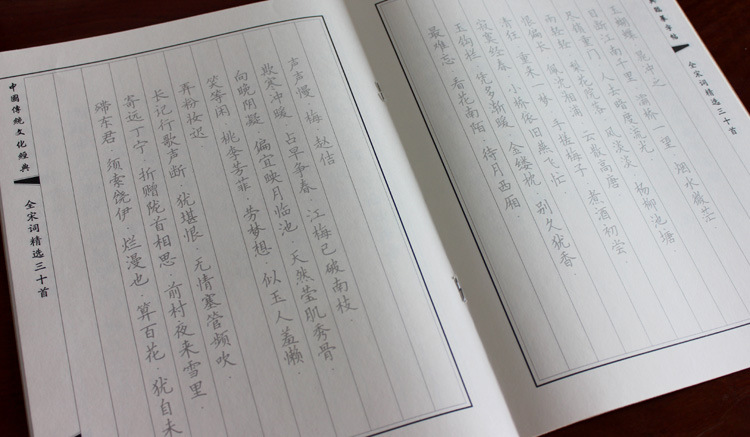 典临摹字帖
全宋词精选三十首
玉蝴蝶 晁冲之
目断江南千里·灞桥一望·烟水微茫·
尽锁重门·人去暗度流光·
雨轻轻·梨花院落·风淡淡·杨柳池塘·
恨偏长·佩沈湘浦·云散高唐·
清狂·重来一梦·手搓梅子·煮酒初尝·
寂寞经春·小桥依旧燕飞忙·
玉钩栏·凭多渐暖·金缕枕·别久犹香·
最难忘·看花南陌·待月西厢·
声声慢·梅 赵佶
欺寒冲暖·占早争春·江梅已破南枝·
向晚阴凝·偏宜映月临池·天然莹肌秀骨·
笑等闲·桃李芳菲·劳梦想·似玉人羞懒
弄粉妆迟·
长记行歌声断·犹堪恨·无情塞管频吹·
寄远丁宁·折赠陇首相思·前村夜来雪里·
殢东君·须索饶伊·烂漫也·算百花·犹自未
中国传统文化经典
全宋词精选三十首